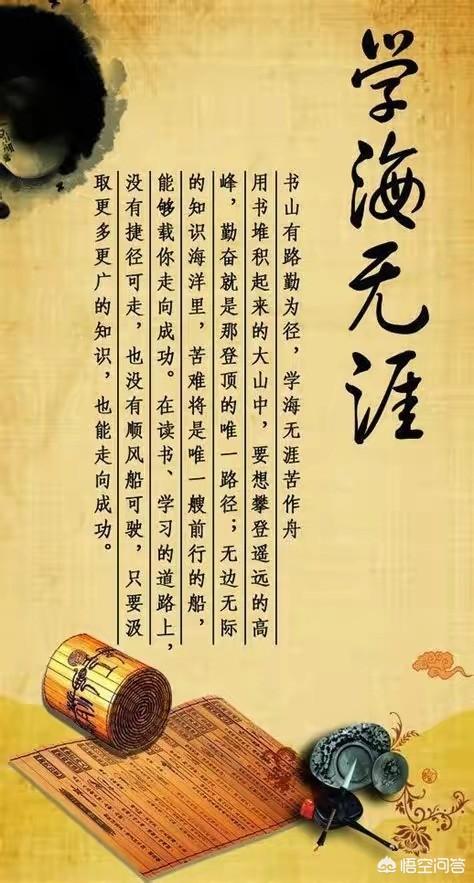 学海无涯
书山有路勤为径，学海无涯苦作舟
用书堆积起来的大山中，要想攀登遥远的高
峰，勤奋就是那登顶的唯一路径；无边无际
的知识海洋里，苦难将是唯一一艘前行的船，
能够载你走向成功。在读书、学习的道路上，
没有捷径可走，也没有顺风船可驶，只要汲
取更多更广的知识，也能走向成功。
悟空问答